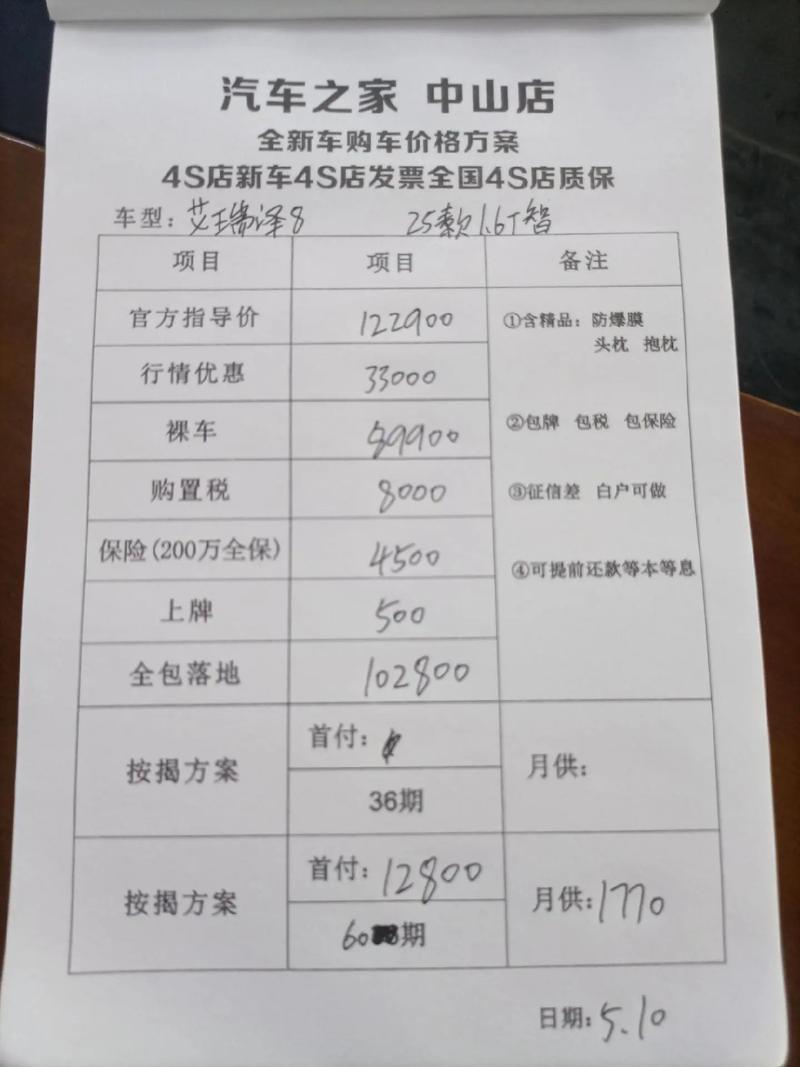 汽车之家 中山店
全新车购车价格方案
4S店新车4S店发票全国4S店质保
车型：艾瑞泽8 25款1.6T智
项目 项目 备注
官方指导价 122900 ①含精品：防爆膜
头枕 抱枕
行情优惠 33000
裸车 89900 ②包牌 包税 包保险
购置税 8000 ③征信差 白户可做
保险(200万全保) 4500 ④可提前还款等本等息
上牌 500
全包落地 102800
按揭方案 首付： 月供：
36期
按揭方案 首付：12800 月供：1770
60期
日期：5.10